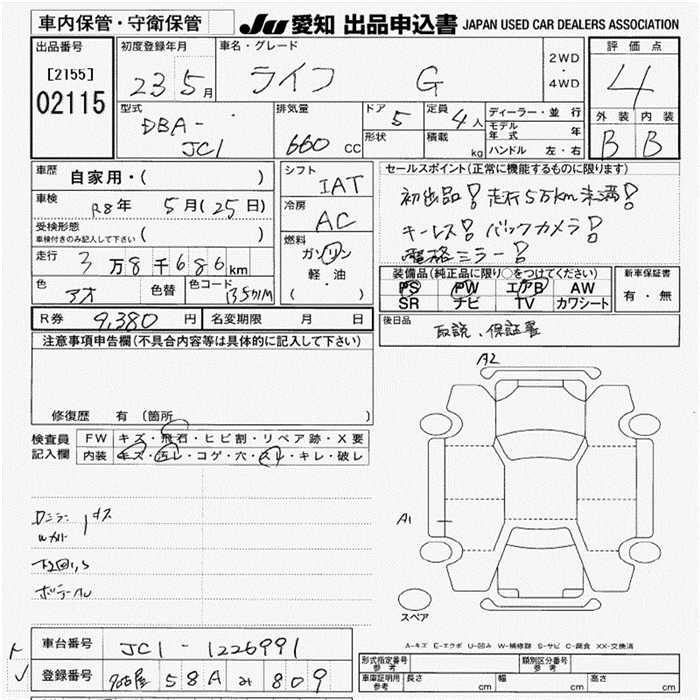 車内保管・守衛保管
JU 愛知 出品申込書 JAPAN USED CAR DEALERS ASSOCIATION
出品番号
[2155]
02115
初度登録年月
23 5月
車名・グレード
ライフ G
2WD
・
4WD
評価点
4
外装 内装
B B
型式
DBA-
JC1
排気量
660 CC
ドア 5
形状
定員 4人
積載 kg
ディーラー・並行
モデル年式 年
ハンドル 左・右
車歴
自家用・( )
車検
R8年 5月(25日)
受検形態
車検付きのみ記入して下さい ( )
走行 3万8千686km
色 アオ 色替 色コード B545M
シフト
IAT
冷房
AC
燃料
ガソリン
軽・油
( )
セールスポイント(正常に機能するものに限ります)
初出品! 走行5万km未満!
キーレス! バックカメラ!
電格ミラー!
装備品(純正品に限り○をつけてください)
PS PW エアB AW
SR ナビ TV カワシート
新車保証書
有・無
R券 9,380円 名変期限 月 日
後日品
取説、保証書
注意事項申告欄(不具合内容等は具体的に記入して下さい)
修復歴 有(箇所 )
検査員
記入欄
FW キズ・飛石・ヒビ割・リペア跡・X要
内装 キズ・汚レ・コゲ・穴・スレ・キレ・破レ
A2
A1
スペア
A-キズ E-エクボ U-凹み W-補修跡 S-サビ C-腐食 XX-交換済
車台番号 JC1-1226991
登録番号 名古屋 58A み 809
形式指定番号
参考
類別区分番号
参考
車庫証明用
参考
長さ cm 幅 cm 高さ cm